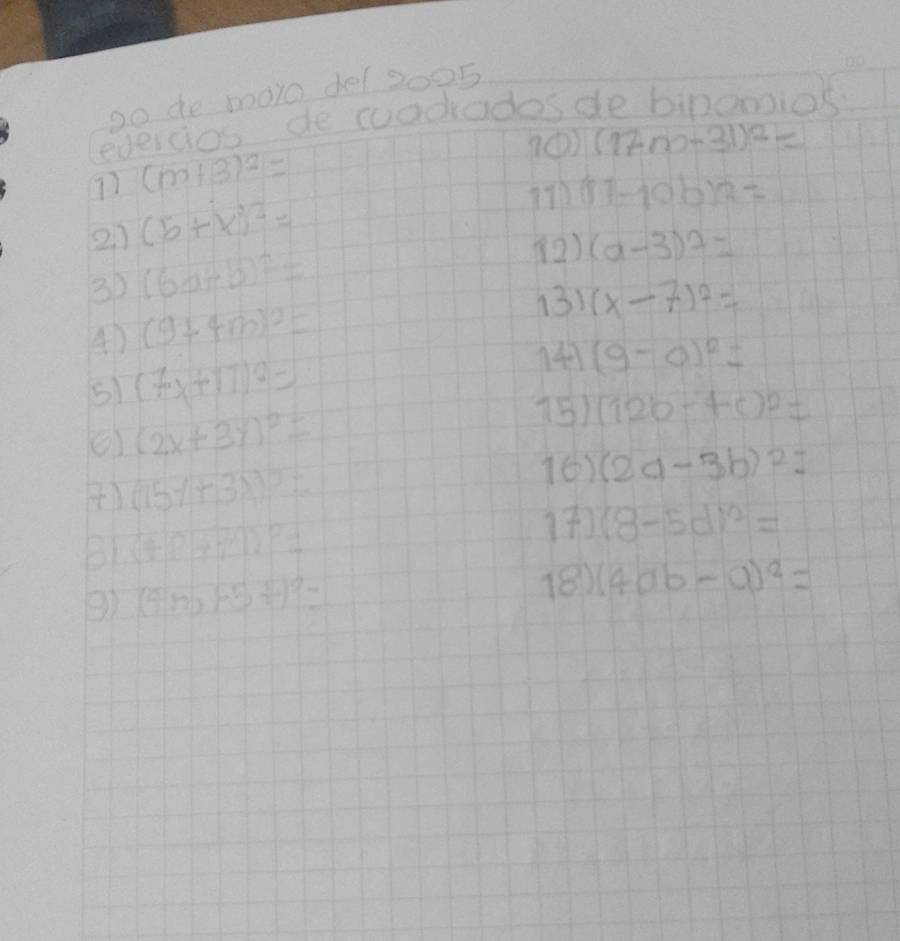 20 de mayo del 2005
evercios de cuadrados de binomios.
1) (m+3)²=
2) (5+x)²=
3) (6a+b)²=
4) (9+4m)²=
5) (7x+11)²=
6) (2x+3y)²=
7)
8)
9)
10) (17m-31)²=
11)
12) (a-3)²=
13) (x-7)²=
14) (9-a)²=
15) (12b-4c)²=
16) (2a-3b)²=
17) (8-5d)²=
18) (4ab-a)²=